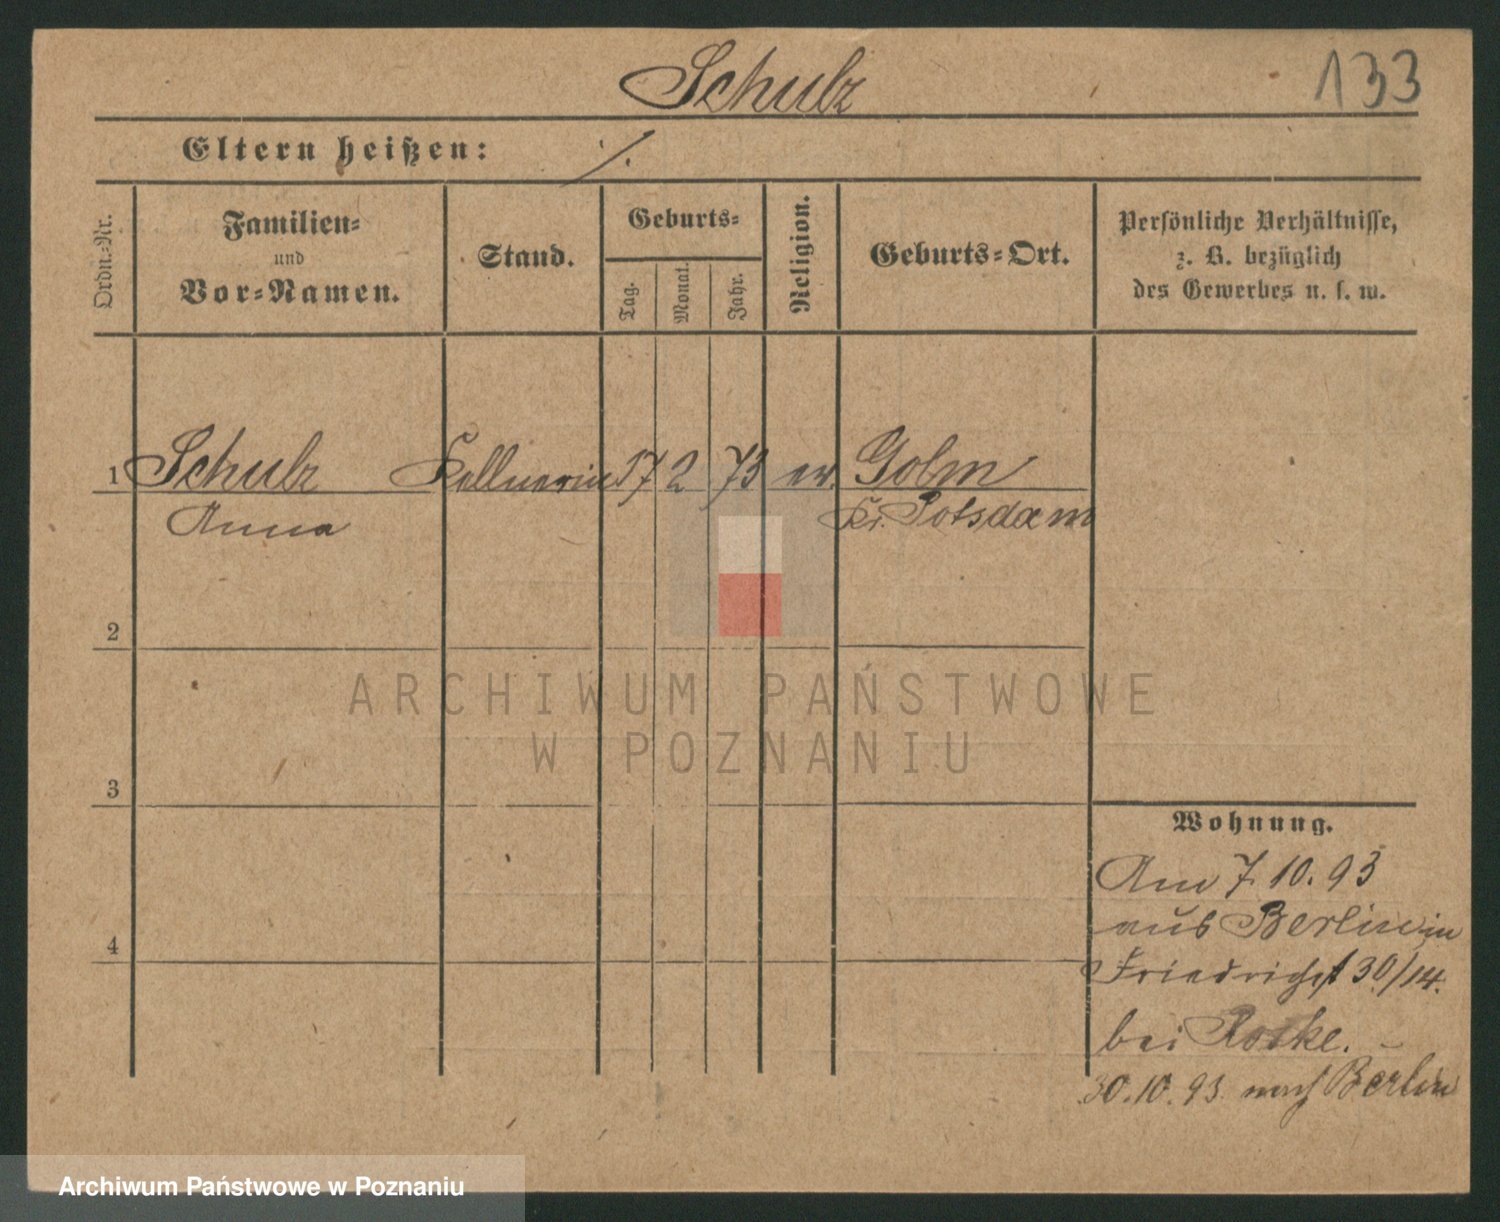 Schulz
133
Eltern heißen: ./.
Ordn.-Nr.
Familien-
und
Vor-Namen.
Stand.
Geburts-
Tag.
Monat.
Jahr.
Religion.
Geburts-Ort.
Persönliche Verhältnisse,
z. B. bezüglich
des Gewerbes u. s. w.
1 Schulz Kellnerin 17 2 73 ev. Golm
Anna Kr. Potsdam
2
3
4
Wohnung.
Am 7.10.93
aus Berlin in
Friedrichst 30/14.
bei Rothe. –
30.10.93 nach Berlin
ARCHIWUM PAŃSTWOWE
W POZNANIU
Archiwum Państwowe w Poznaniu